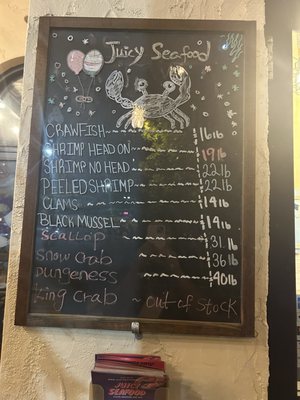 Juicy Seafood
CRAWFISH 16 lb
SHRIMP HEAD ON 19 lb
SHRIMP NO HEAD 22 lb
PEELED SHRIMP 22 lb
CLAMS 14 lb
BLACK MUSSEL 14 lb
Scallop 31 lb
snow crab 36 lb
Dungeness 40 lb
King crab ~ out of stock
JUICY
SEAFOOD